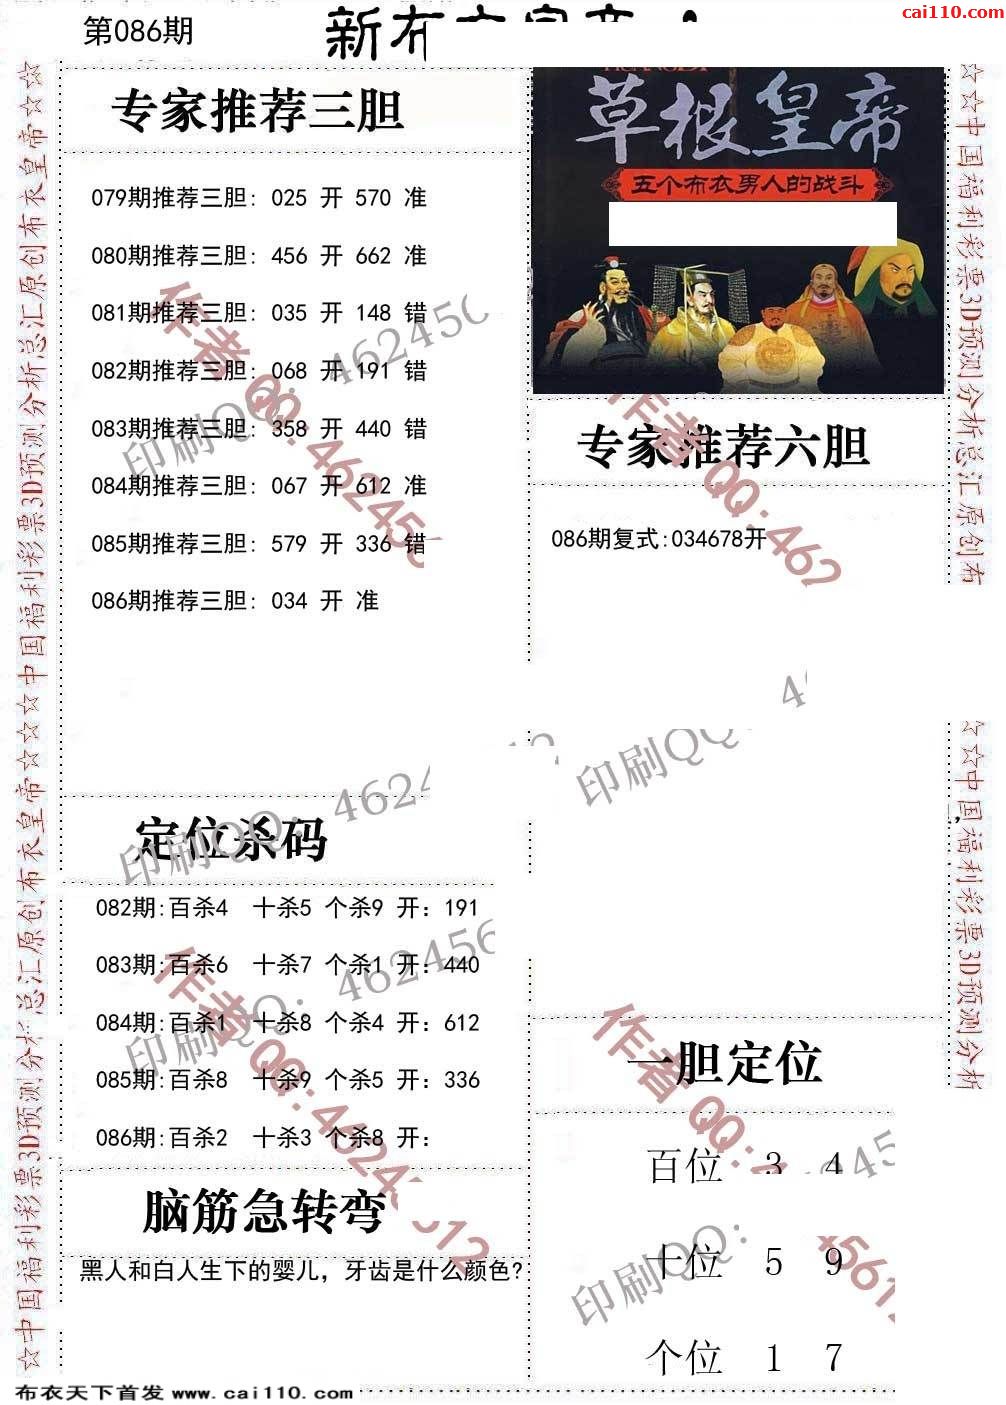 cai110.com
第086期
☆☆中国福利彩票3D预测分析总汇原创布衣皇帝☆☆☆中国福利彩票3D预测分析总汇原创布衣皇帝☆☆
专家推荐三胆
079期推荐三胆: 025 开 570 准
080期推荐三胆: 456 开 662 准
081期推荐三胆: 035 开 148 错
082期推荐三胆: 068 开 191 错
083期推荐三胆: 358 开 440 错
084期推荐三胆: 067 开 612 准
085期推荐三胆: 579 开 336 错
086期推荐三胆: 034 开 准
定位杀码
082期:百杀4 十杀5 个杀9 开: 191
083期:百杀6 十杀7 个杀1 开: 440
084期:百杀1 十杀8 个杀4 开: 612
085期:百杀8 十杀9 个杀5 开: 336
086期:百杀2 十杀3 个杀8 开:
脑筋急转弯
黑人和白人生下的婴儿，牙齿是什么颜色?
草根皇帝
五个布衣男人的战斗
专家推荐六胆
086期复式:034678开
一胆定位
百位 3 4
十位 5 9
个位 1 7
☆☆中国福利彩票3D预测分析总汇原创布
☆☆中国福利彩票3D预测分析
作者QQ:46245
印刷QQ: 46245
布衣天下首发 www.cai110.com